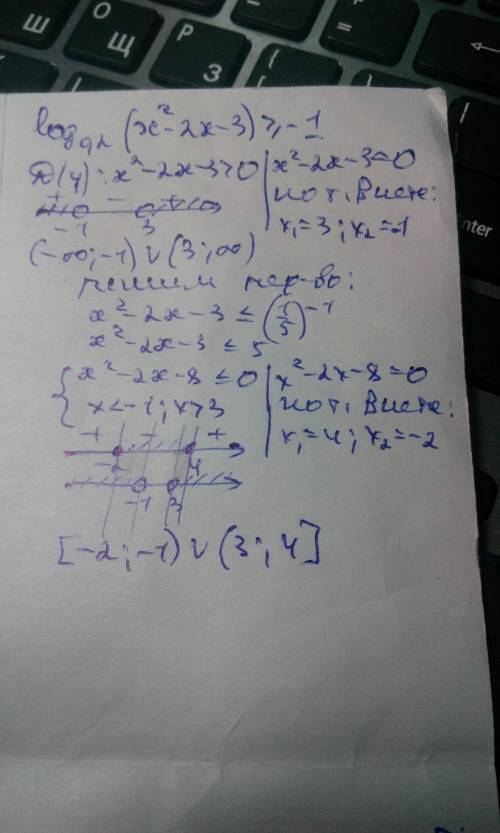 Ш
О
Щ
Р
З
{
[
+
=
Enter
log₀,₂ (x² - 2x - 3) ≥ -1
D(y): x² - 2x - 3 > 0 | x² - 2x - 3 = 0
+ - + | по т. Виета:
-1 3 | x₁ = 3; x₂ = -1
(-∞; -1) ∪ (3; ∞)
решим нер-во:
x² - 2x - 3 ≤ (1/5)⁻¹
x² - 2x - 3 ≤ 5
{ x² - 2x - 8 ≤ 0 | x² - 2x - 8 = 0
x < -1; x > 3 | по т. Виета:
+ - + | x₁ = 4; x₂ = -2
-2 4
-1 3
[-2; -1) ∪ (3; 4]